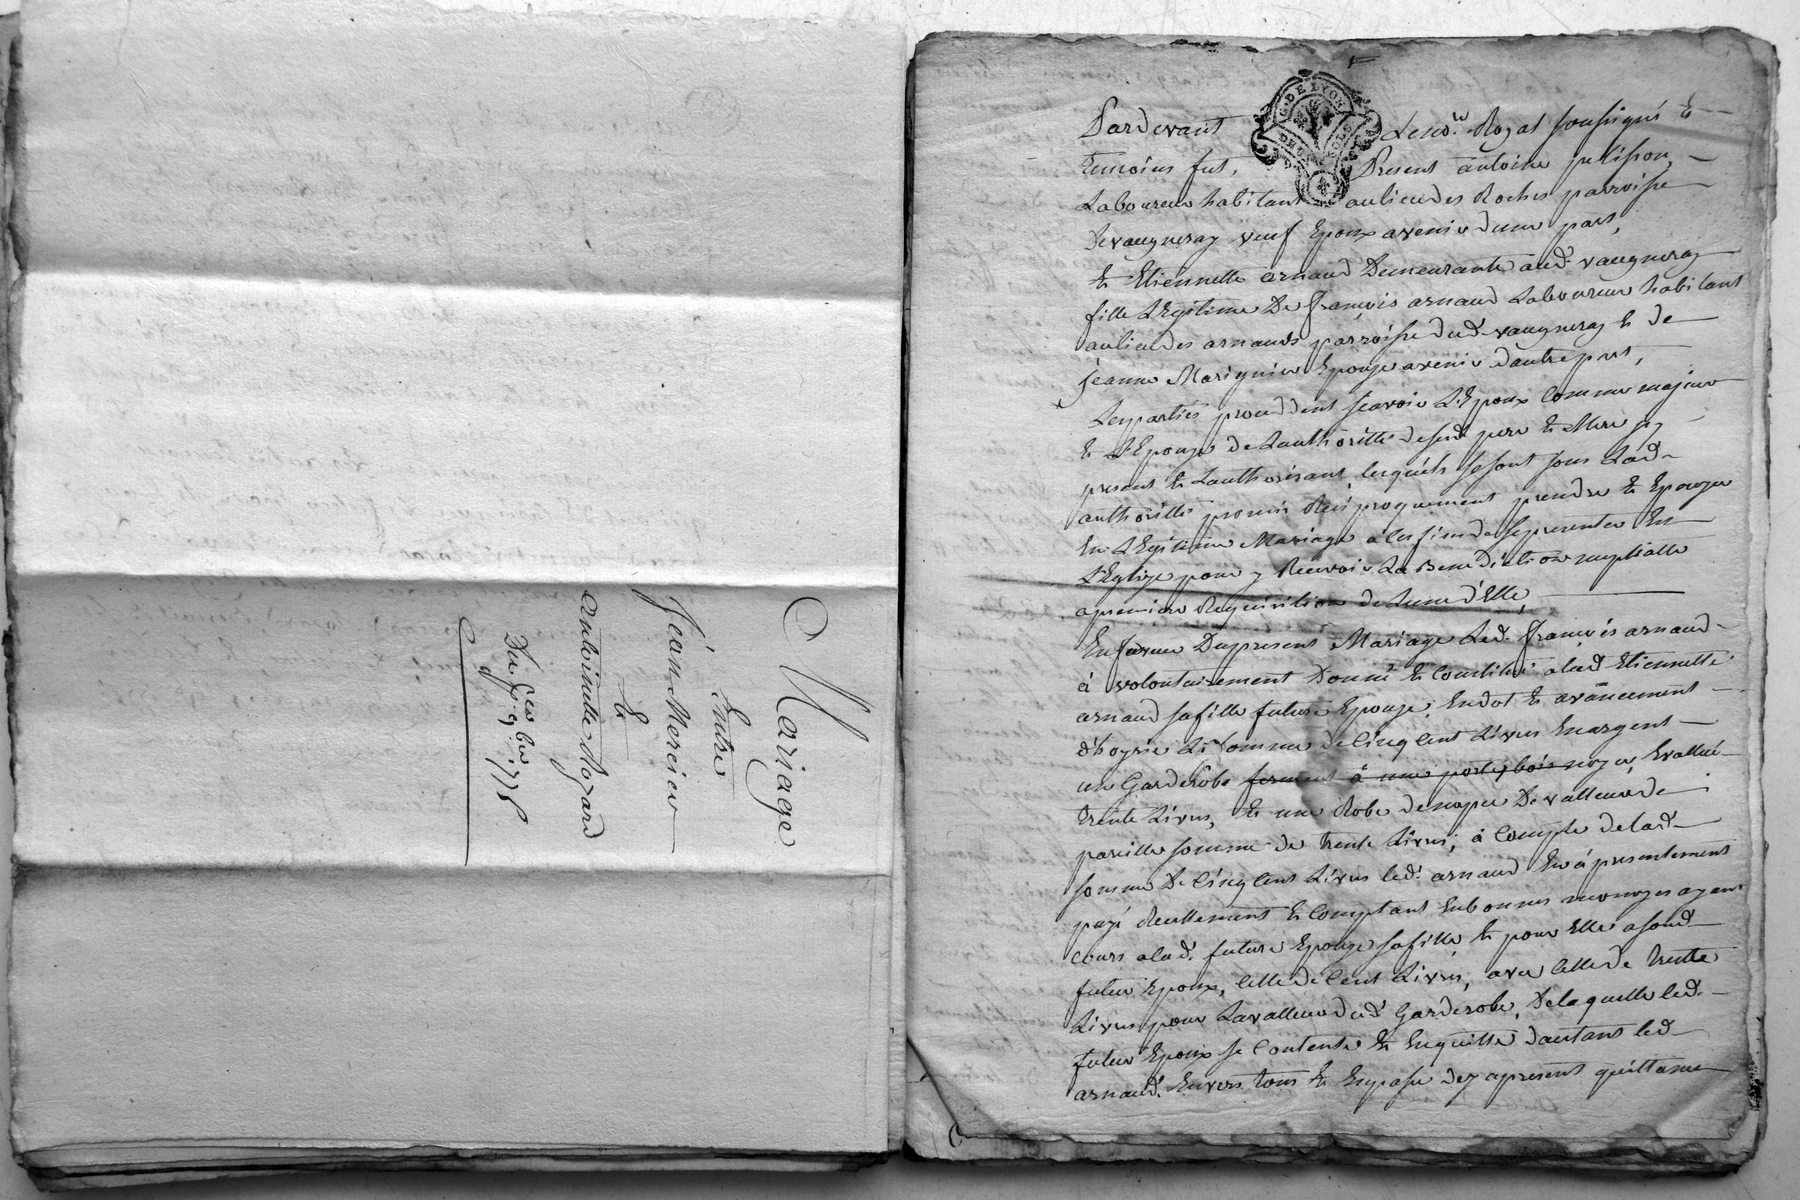 Mariage
Entre
Jean Mercier
Et
Antoinette Bozard
Du 9 1778
G. DE LYON
Pardevant Le no.re Royal soussigné &
temoins fut, Present antoine pelisson,
Laboureur habitant au lieu des Roches parroisse
De vaugneray veuf Epoux avenir d'une part,
Et Etiennette arnaud Demeurante aud. vaugneray
fille Legitime De françois arnaud Laboureur habitant
au lieu des arnauds parroisse dud. vaugneray & de
jeanne Marignier Epouse avenir d'autre part,
Les parties procedent sçavoir L'Epoux Comme majeur
& L'Epouse de Lauthoritté desesd. pere & Mere icy
present & Lauthorisant, lesquels se sont sous Lad.
authoritté promis Reciproquement prendre & Epouser
En Legitime Mariage à les fins de se presenter En
L'Eglise pour y Recevoir La Benediction nuptialle
a premiere Requisition de Lun d'Elle,
En faveur Du present Mariage Led. françois arnaud
à volontairement Donné & Constitué alad. Etiennette
arnaud sa fille future Epouse, En dot & avancement
d'hoyrie La somme de Cinq Cent Livres En argent
un Garderobe fermant à une porte, bois noyer, Evallué
trente Livres, & une Robe de noces De valleur de
pareille somme de trente Livres, à Compte de lad.
somme De Cinq Cent Livres led. arnaud En à presentement
payé Reellement & Comptant En bonnes monoyes ayant
cours alad. future Epouse sa fille & pour Elle a sond.
futur Epoux, Celle de Cent Livres, avec Celle de trente
Livres pour La valleur dud. Garderobe, De laquelle led.
futur Epoux se Contente & En quitte d'autant led.
arnaud, Envers tous & En passe dez apresent quittance